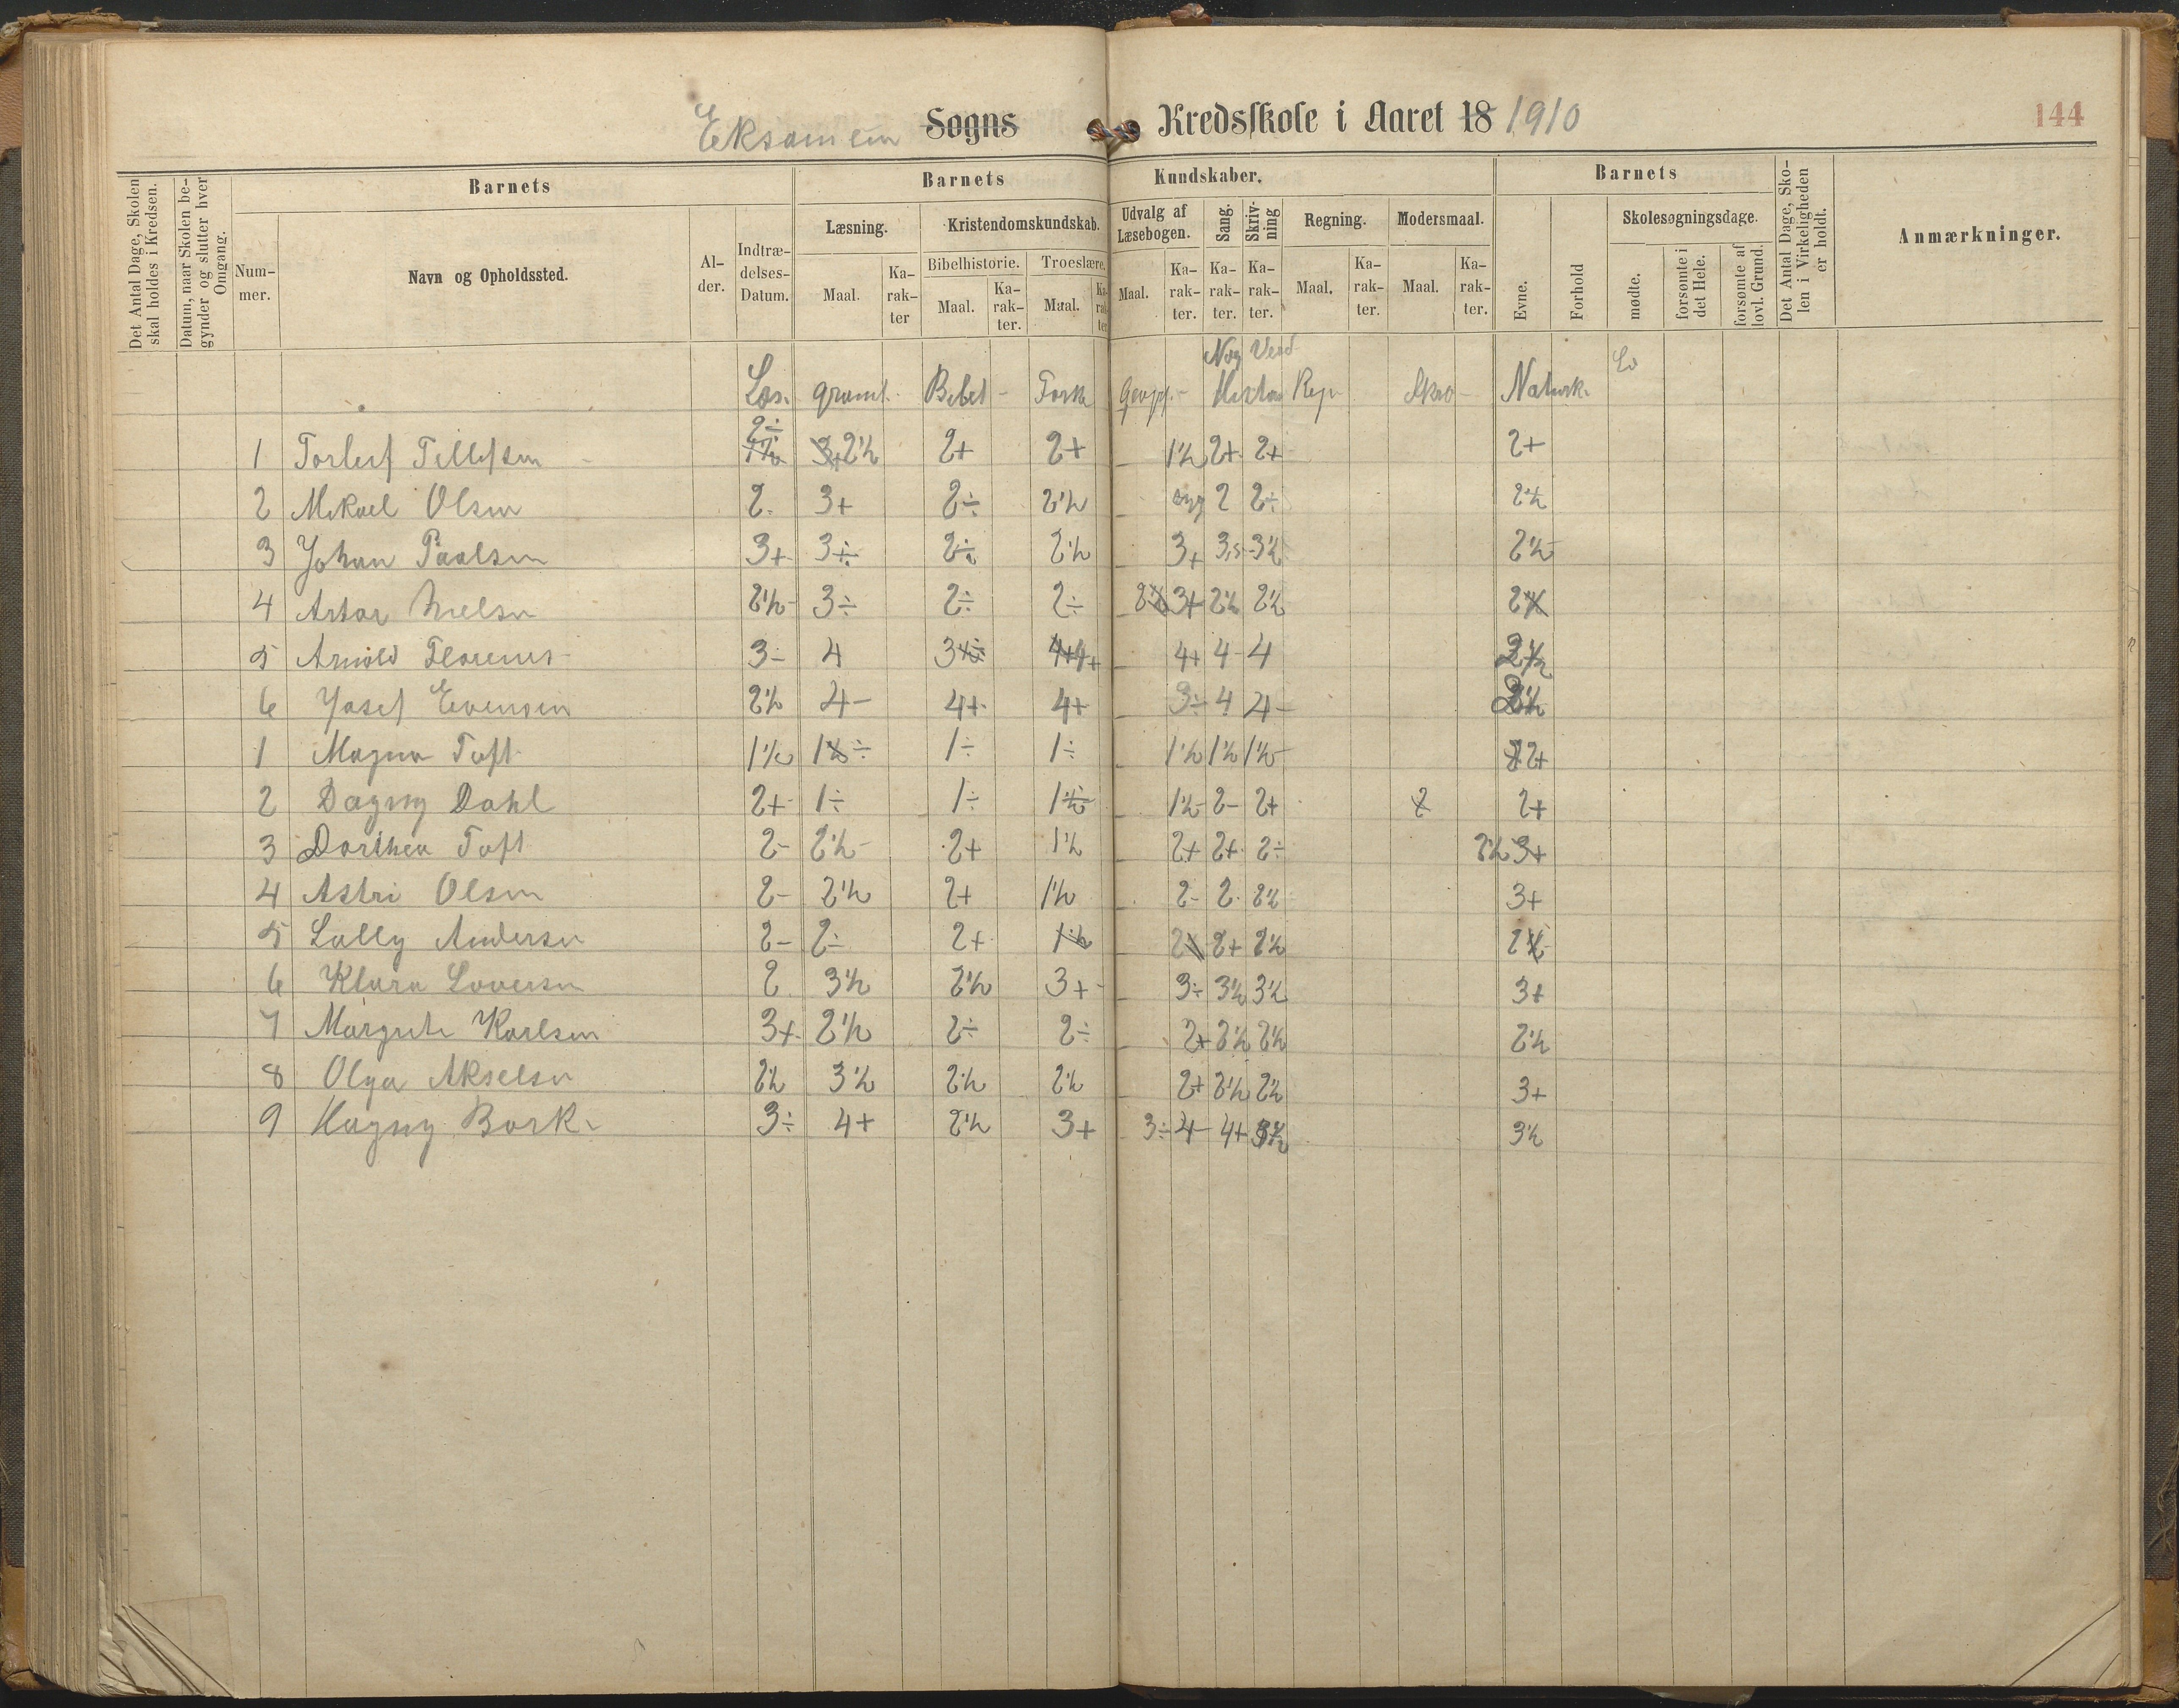 Eksamen Sogns Kredsskole i Aaret 18 1910
144
Det Antal Dage, Skolen skal holdes i Kredsen.
Datum, naar Skolen be-gynder og slutter hver Omgang.
Barnets
Barnets Kundskaber.
Barnets
Det Antal Dage, Sko-len i Virkeligheden er holdt.
Anmærkninger.
Num-mer.
Navn og Opholdssted.
Al-der.
Indtræ-delses-Datum.
Læsning.
Kristendomskundskab.
Udvalg af Læsebogen.
Sang.
Skriv-ning
Regning.
Modersmaal.
Evne.
Forhold
Skolesøgningsdage.
Bibelhistorie.
Troeslære.
Maal.
Ka-rak-ter
Maal.
Ka-rak-ter.
Maal.
Ka-rak-ter
Maal.
Ka-rak-ter.
Ka-rak-ter.
Ka-rak-ter.
Maal.
Ka-rak-ter.
Maal.
Ka-rak-ter.
mødte.
forsømte i det Hele.
forsømte af lovl. Grund.
Læs. Bibel Naturk.
1 Torleif Tellefsen 2÷ 2½ 2+ 2+ 1½ 2+ 2+ 2+
2 Mikael Olsen 2 3+ 2÷ 2½ syg 2 2÷ 2½
3 Johan Paalsen 3+ 3÷ 2÷ 2½ 3+ 3½ 2½
4 Artor Nielsen 2½ 3÷ 2÷ 2÷ 3+ 2½ 2½
5 Arnold 3- 4 4+ 4+ 4- 4
6 Josef Evensen 2½ 4- 4+ 4+ 3÷ 4 4-
1 Magna Toft 1½ 1÷ 1÷ 1½ 1½ 1½ 2+
2 Dagny Dahl 2+ 1÷ 1÷ 1½ 2- 2+ 2 2+
3 Dorthea Toft 2- 2½- 2+ 1½ 2+ 2+ 2÷ 2½ 3+
4 Astri Olsen 2- 2½ 2+ 1½ 2- 2 2½ 3+
5 Lally Andersen 2- 2÷ 2+ 1½ 2 2+ 2½
6 Klara 2 3½ 2½ 3+ 3÷ 3½ 3½ 3+
7 Margrete Karlsen 3+ 2½ 2÷ 2÷ 2+ 2½ 2½ 2½
8 Olga Akselsen 2½ 3½ 2½ 2½ 2+ 2½ 2½ 3+
9 Bork 3÷ 4+ 2½ 3+ 3÷ 4- 4+ 3½